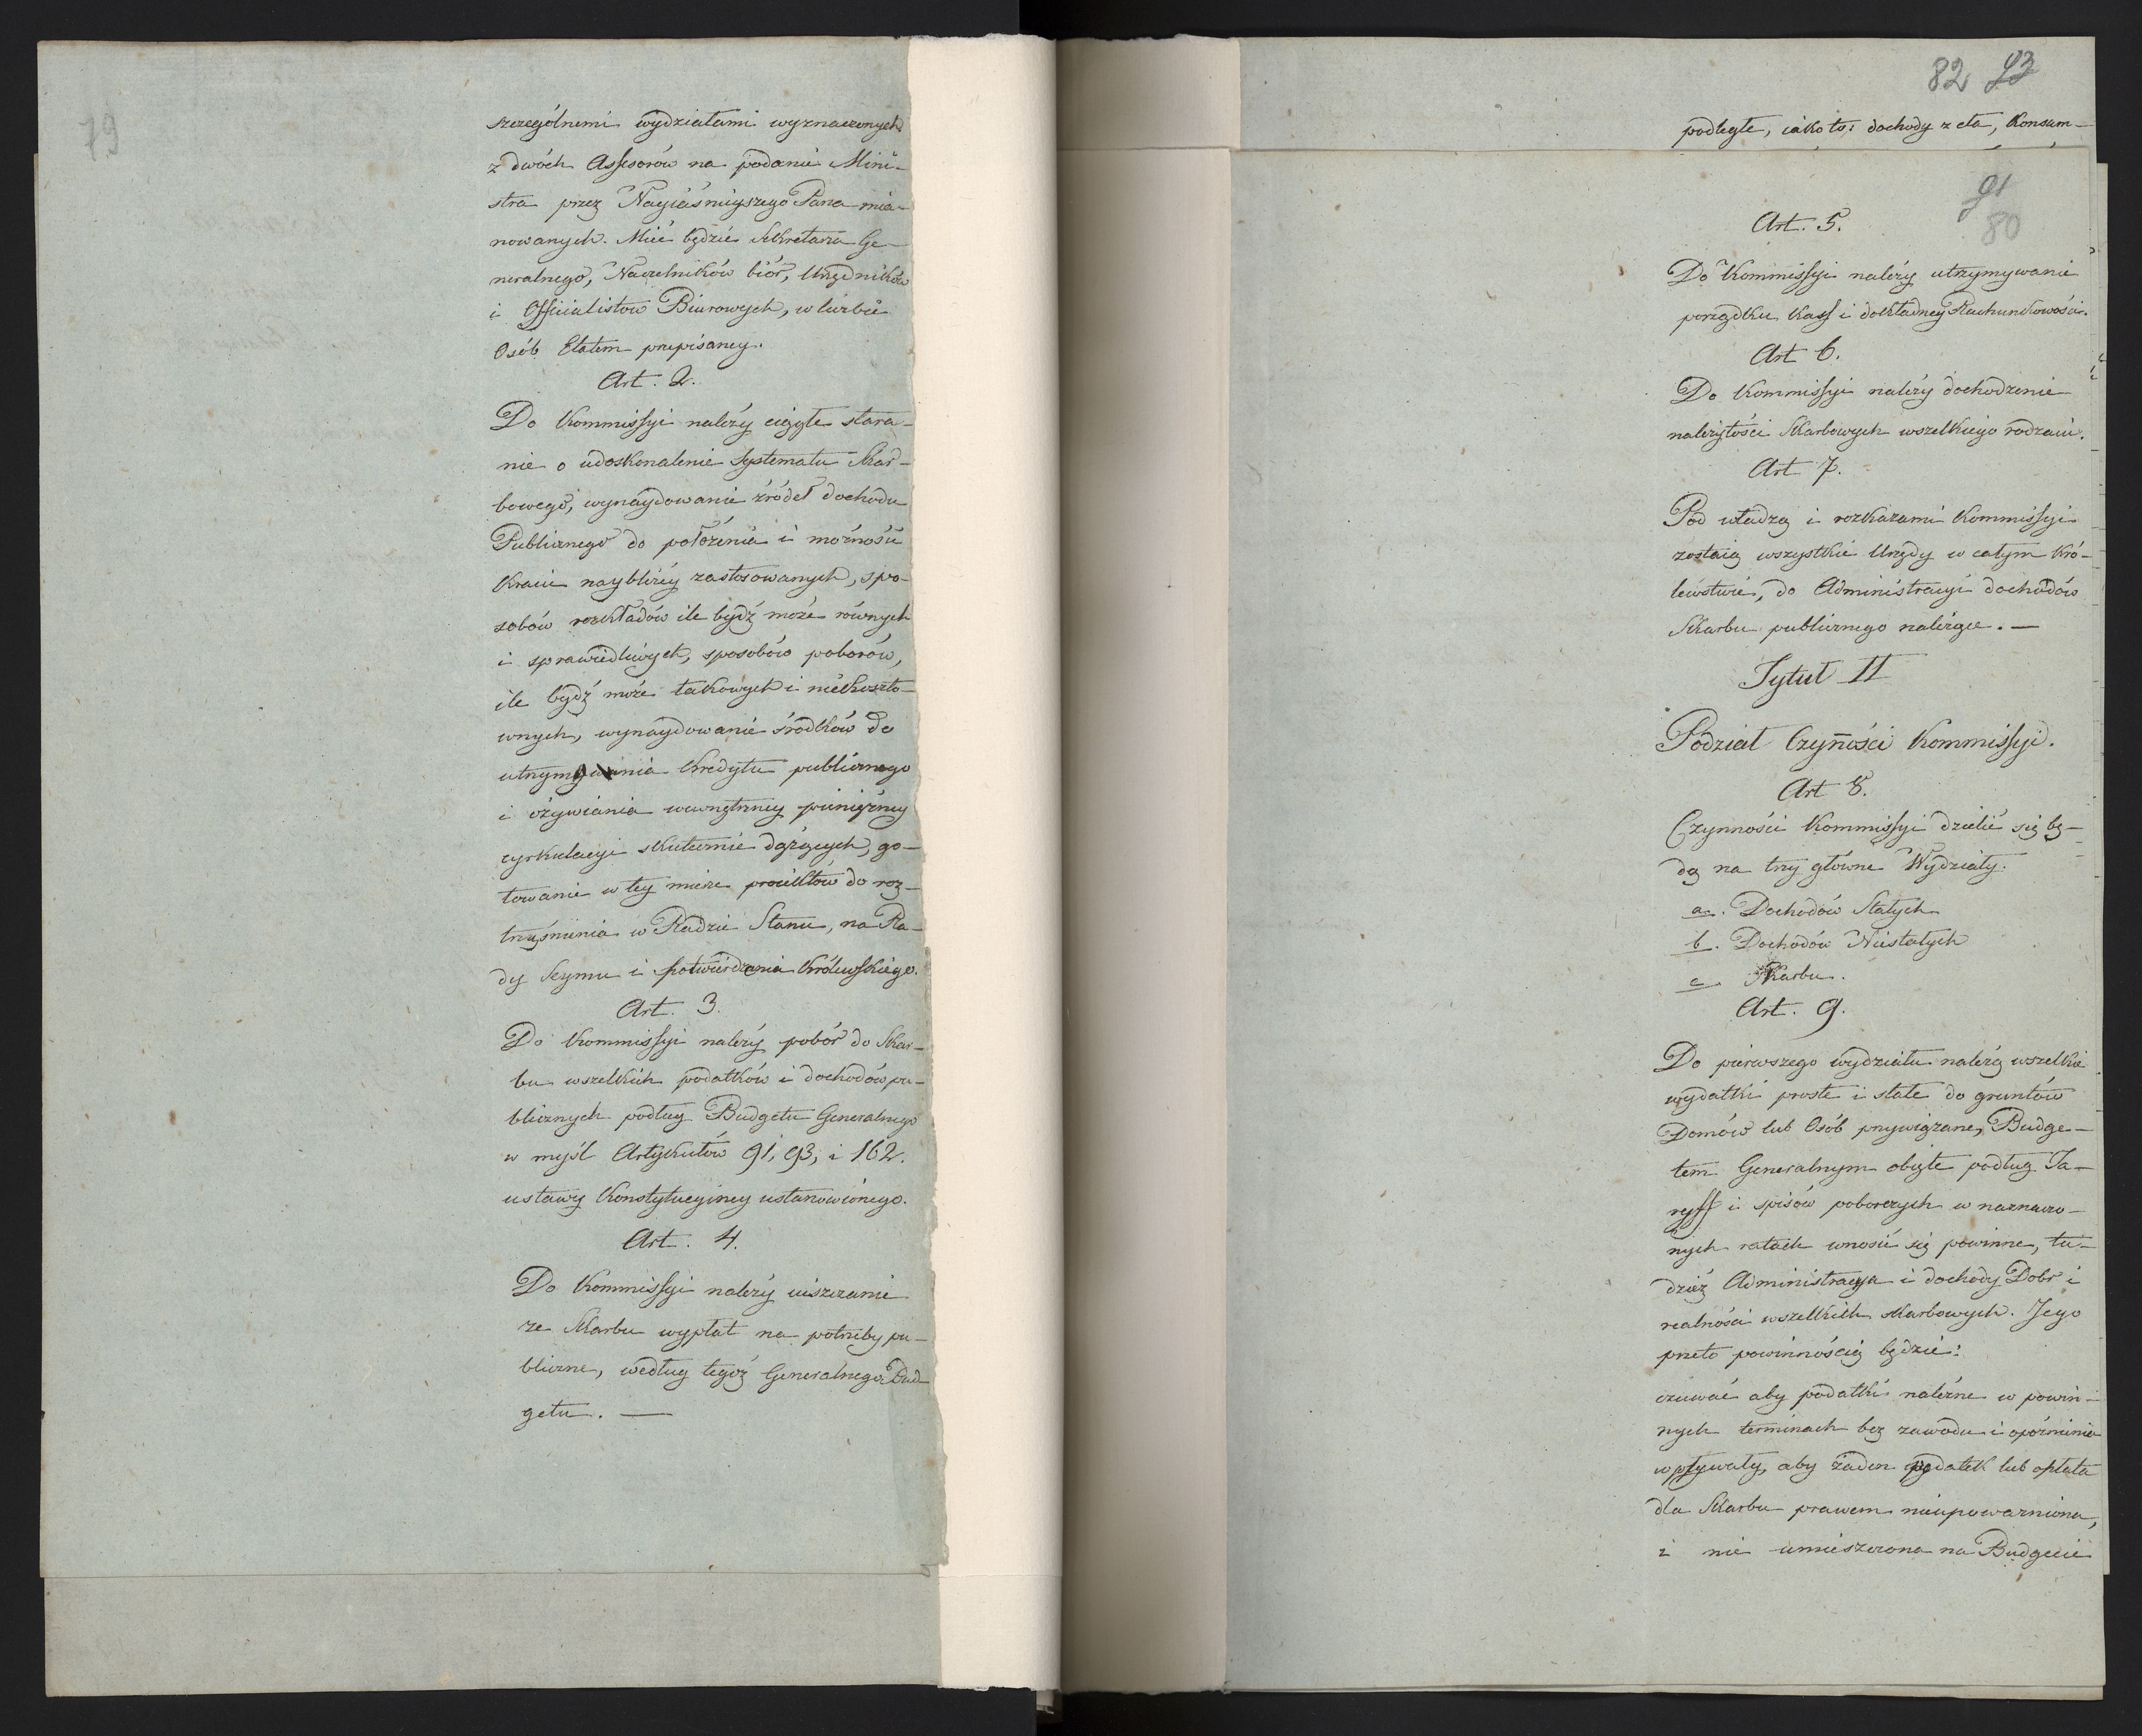 79
szczególnemi wydziałami wyznaczonych
z dwóch Assesorów na podanie Mini-
stra przez Nayiaśnieyszego Pana mia-
nowanych. Mieć będzie Sekretarza Ge-
neralnego, Naczelników biór, Urzędników
i Officialistow Biurowych, w liczbie
Osób Etatem przepisaney.
Art. 2.
Do Kommissyi należy ciągłe stara-
nie o udoskonalenie Systematu Skar-
bowego, wynaydowanie źródeł dochodu
Publicznego do położenia i możności
Kraiu naybliżey zastosowanych, spo-
sobów rozkładów ile bydź może równych
i sprawiedliwych, sposobów poborów,
ile bydź może takowych i niekoszto-
wnych, wynaydowanie środków do
utrzymywania Kredytu publicznego
i ożywiania wewnętrzney pieniężney
cyrkulacyi skutecznie dążących, go-
towanie w tey mierze proiektów do roz-
trząśnienia w Radzie Stanu, na Ra-
dy Seymu i potwierdzenia Królewskiego.
Art. 3.
Do Kommissyi należy pobór do Skar-
bu wszelkich podatków i dochodów pu-
blicznych podług Budgetu Generalnego
w myśl Artykułów 91, 93, i 162.
ustawy Konstytucyiney ustanowionego.
Art. 4.
Do Kommissyi należy uiszczanie
ze Skarbu wypłat na potrzeby pu-
bliczne, według tegoż Generalnego Bud-
getu. —
82 93
podległe, iako to: dochody z cła, Konsum-
91
80
Art. 5.
Do Kommissyi należy utrzymywanie
porządku Kass i dokładney Rachunkowości.
Art 6.
Do Kommissyi należy dochodzenie
należytości Skarbowych wszelkiego rodzaiu.
Art 7.
Pod władzą i rozkazami Kommissyi
zostaią wszystkie Urzędy w całym Kró-
lewstwie, do Administracyi dochodów
Skarbu publicznego należące. —
Tytuł II
Podział Czynności Kommissyi.
Art 8.
Czynności Kommissyi dzielić się bę-
dą na trzy główne Wydziały:
a. Dochodów Stałych
b. Dochodów Niestałych
c. Skarbu.
Art. 9.
Do pierwszego wydziału należą wszelkie
wydatki proste i stałe do gruntów
Domów lub Osób przywiązane, Budge-
tem Generalnym obięte podług Ta-
ryff i spisów poborczych w naznaczo-
nych ratach wnosić się powinne, tu-
dzież Administracya i dochody Dobr i
realności wszelkich skarbowych. Jego
przeto powinnością będzie:
czuwać aby podatki należne w powin-
nych terminach bez zawodu i opóźnienia
wpływały, aby żaden podatek lub opłata
dla Skarbu prawem nieupoważniona,
i nie umieszczona na Budgecie